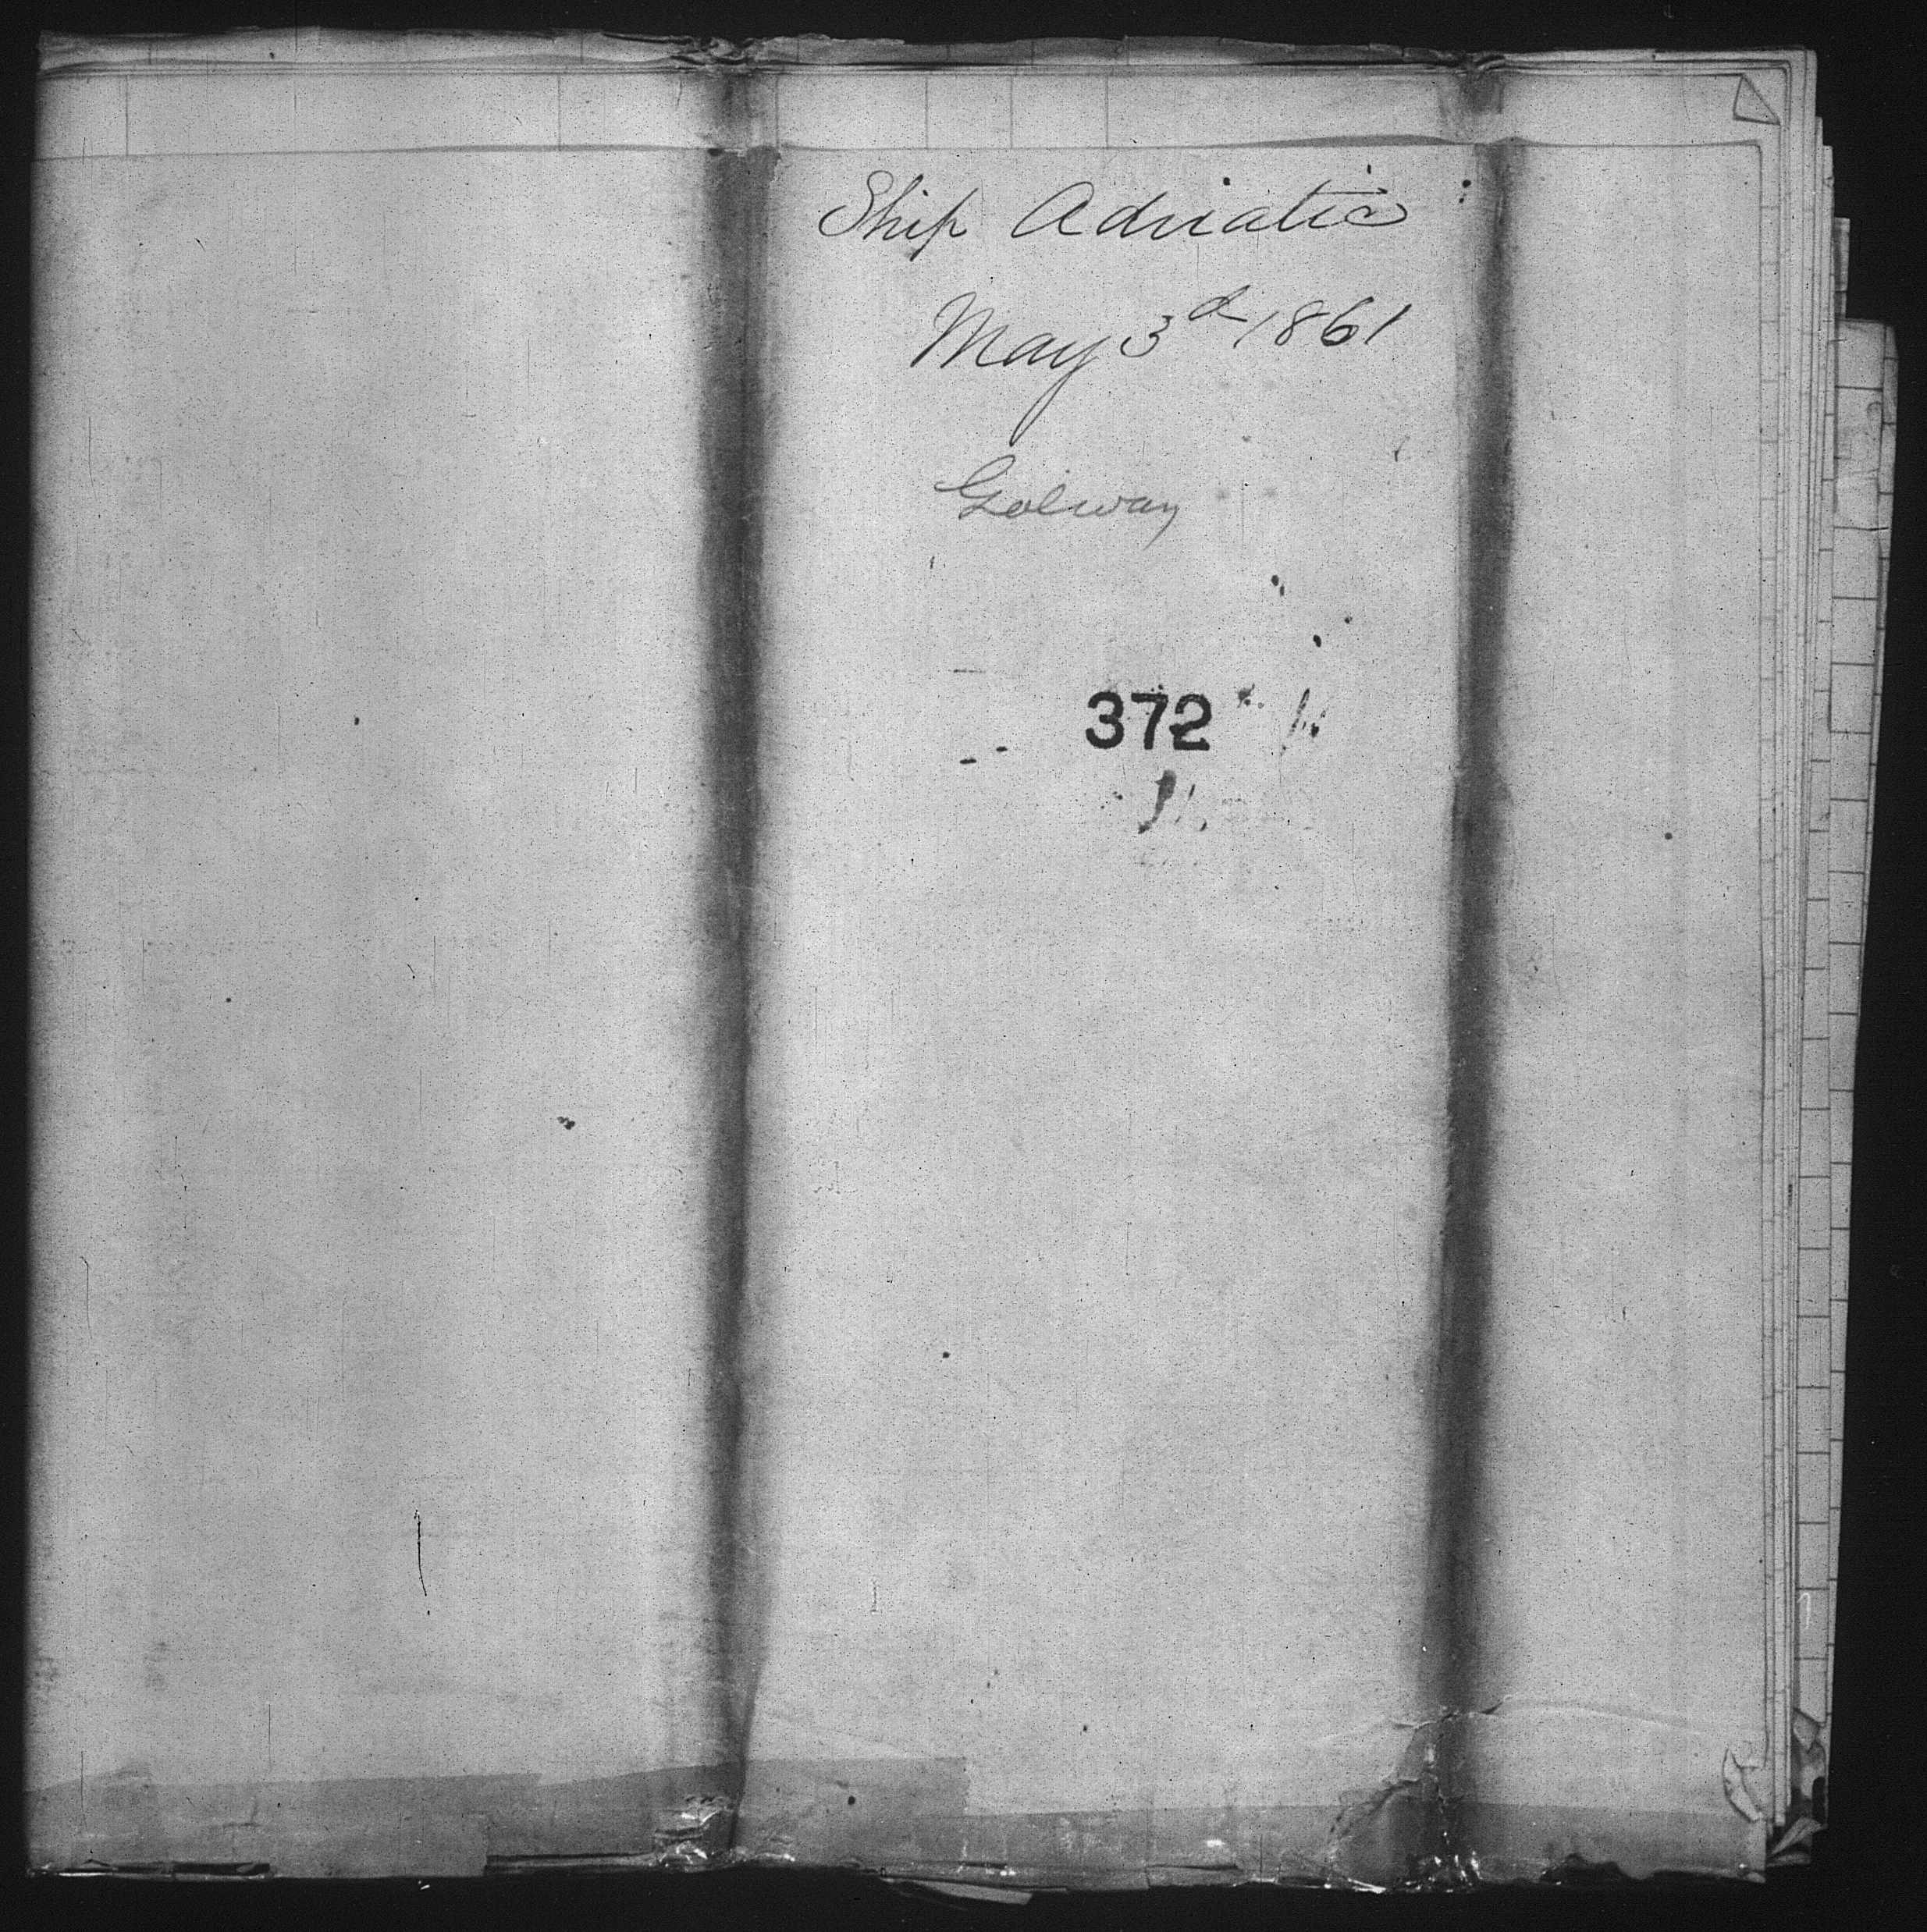 Ship Adriatic
May 3d 1861
Golway
372